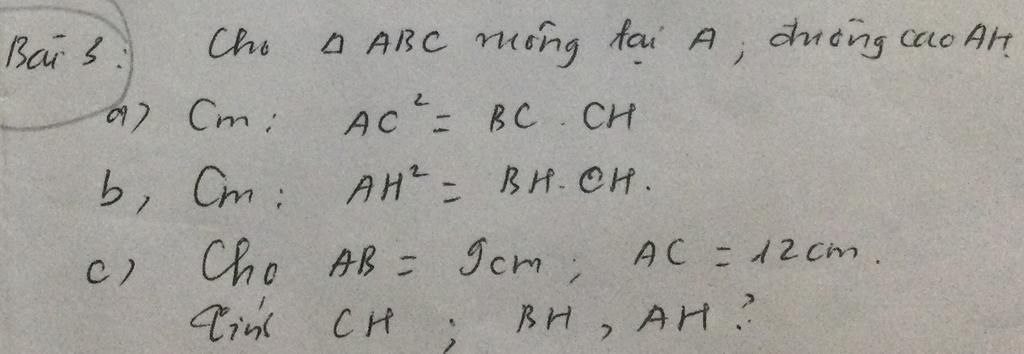 Bài 3: Cho Δ ABC vuông tại A, đường cao AH.
a) Cm: AC² = BC . CH
b, Cm: AH² = BH . CH.
c) Cho AB = 9cm; AC = 12cm.
Tính CH; BH, AH?